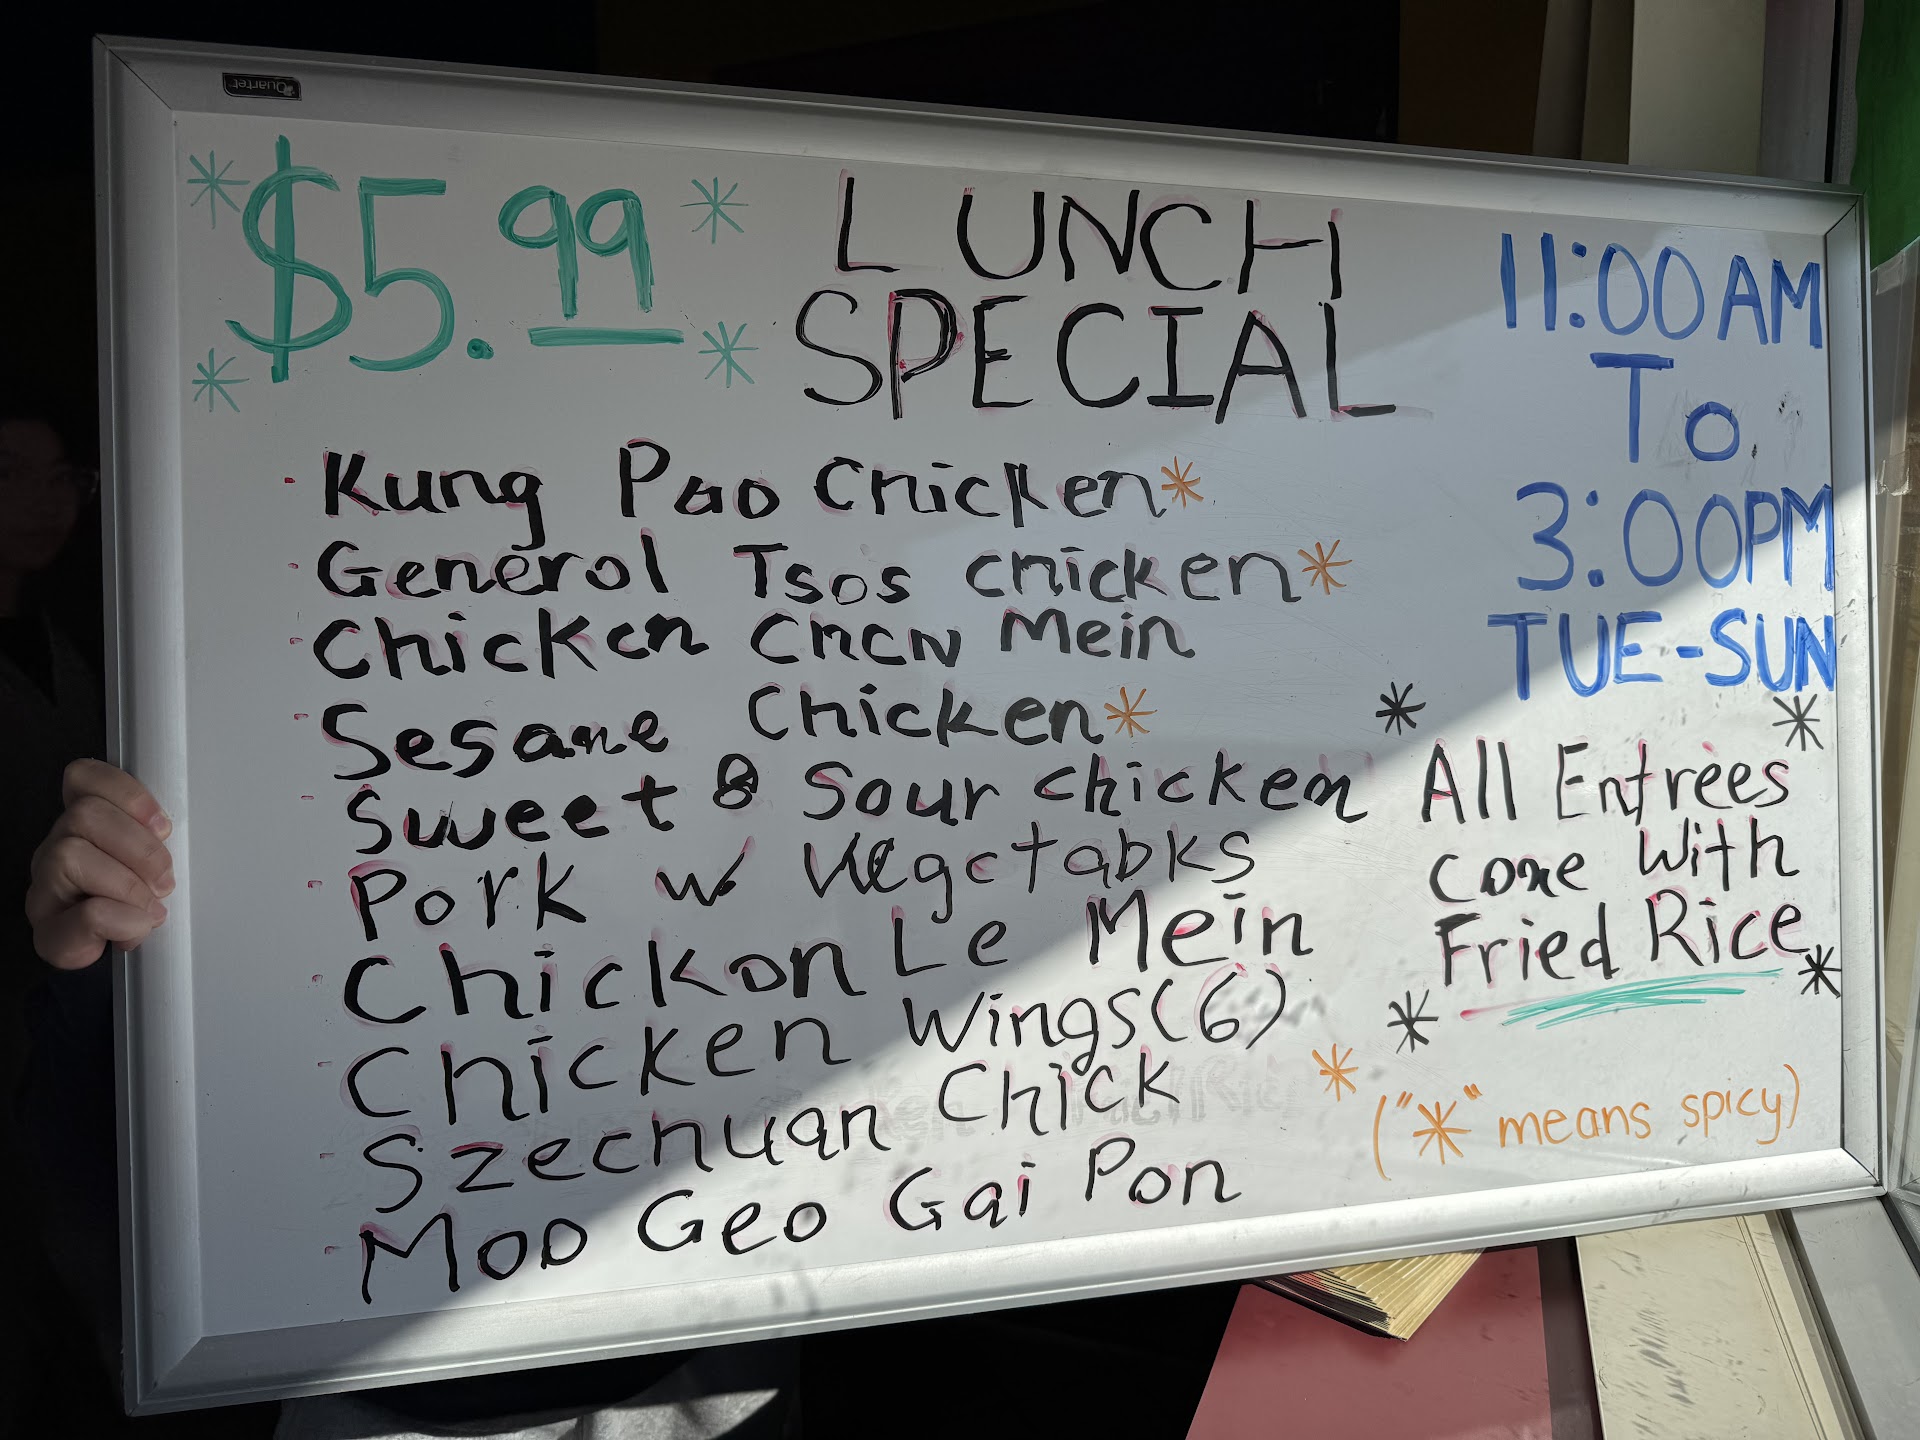 Quartet
* $5.99 *
* *
LUNCH
SPECIAL
· Kung Pao Chicken*
· General Tsos chicken*
· Chicken Chcn Mein
- Sesame Chicken*
- Sweet & Sour chicken
- Pork w. Vegetabks
- Chickon Le Mein
- Chicken Wings (6)
- Szechuan Chick
- Moo Geo Gai Pon
11:00 AM
To
3:00PM
TUE-SUN
* *
All Entrees
come With
Fried Rice
* *
* ("*" means spicy)